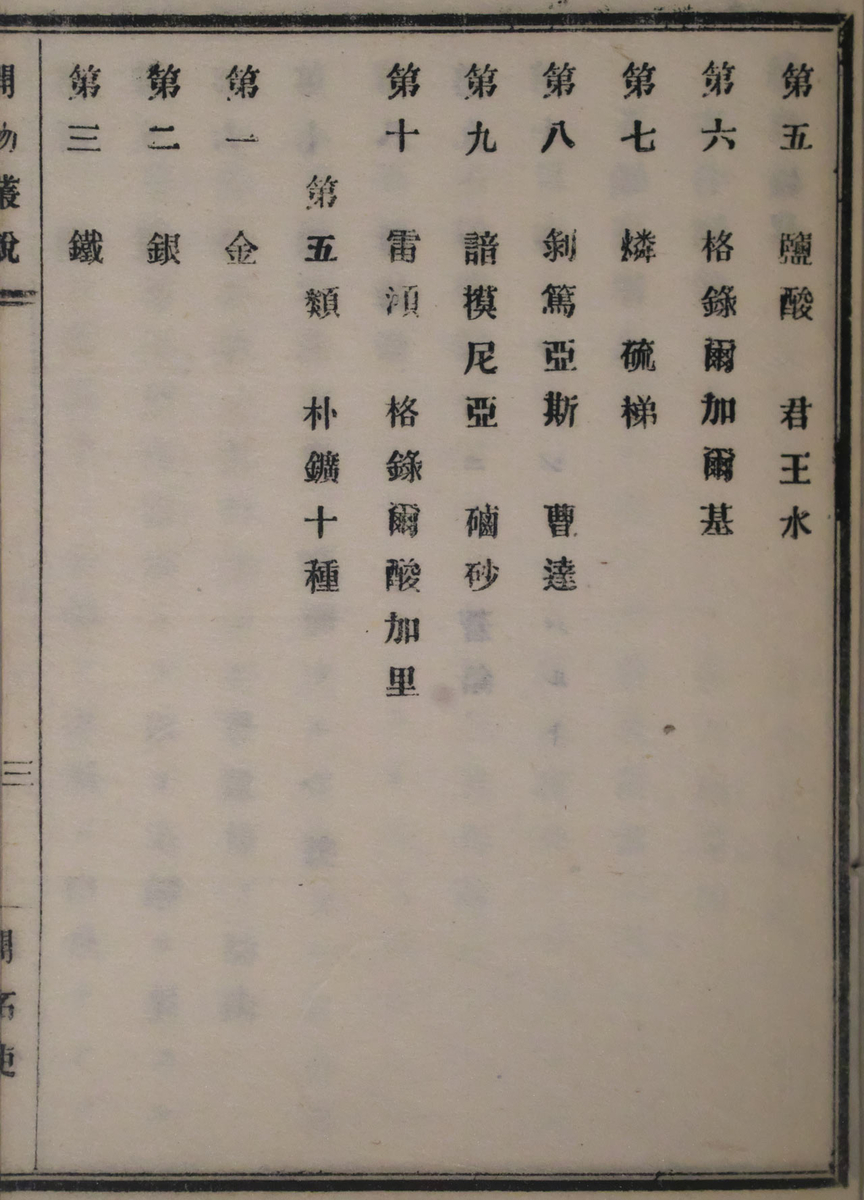 第五 鹽酸 君王水
第六 格錄爾加爾基
第七 燐 硫梯
第八 剝篤亞斯 曹達
第九 諳摸尼亞 磠砂
第十 雷澒 格錄爾酸加里
第五類 朴鑛十種
第一 金
第二 銀
第三 鐵
開物叢說 三 開拓使